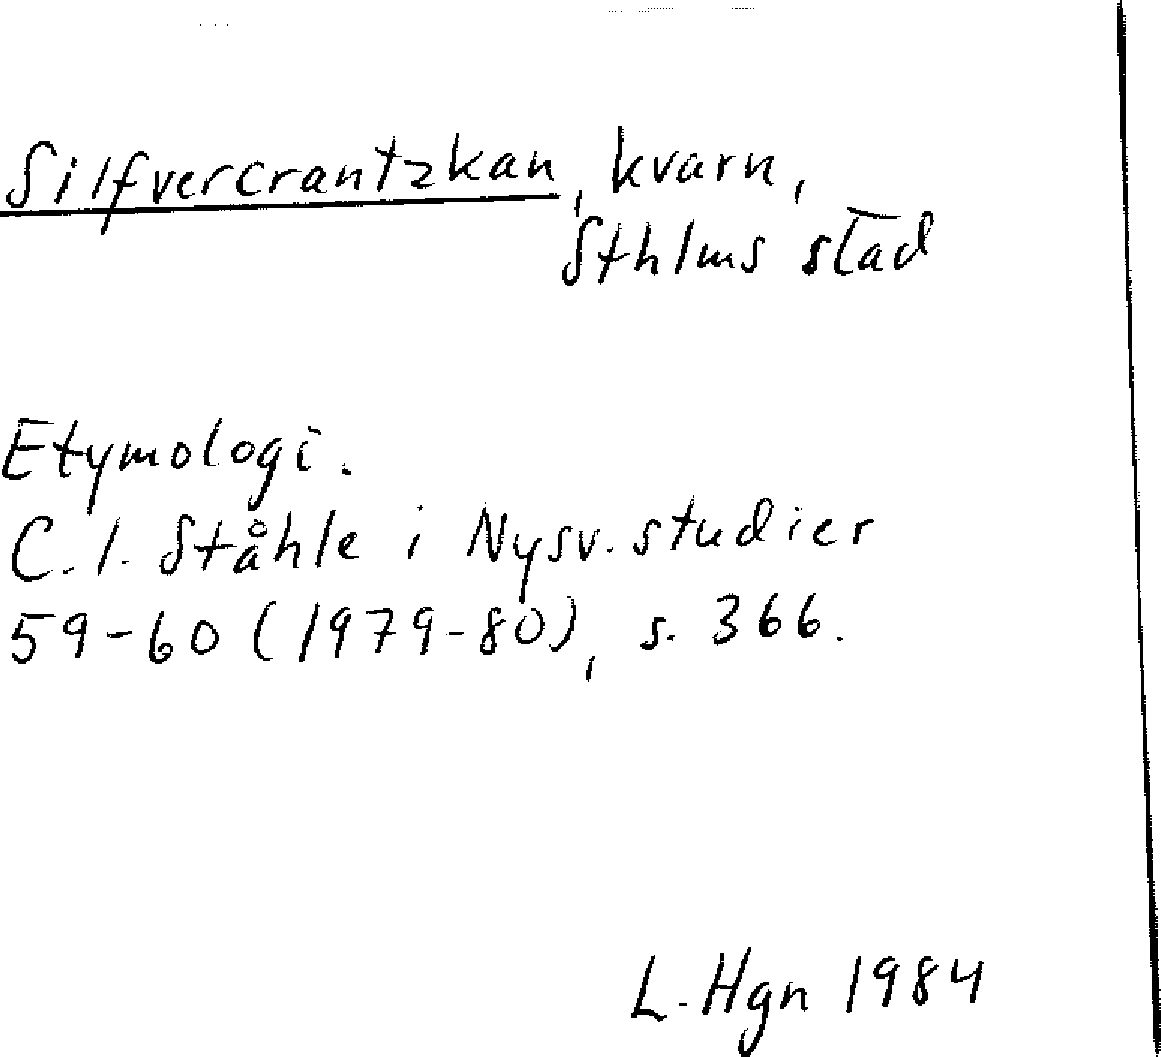 Silfvercrantzkan, kvarn,
Sthlms stad
Etymologi.
C.I. Ståhle i Nysv. studier
59-60 (1979-80), s. 366.
L-Hgn 1984